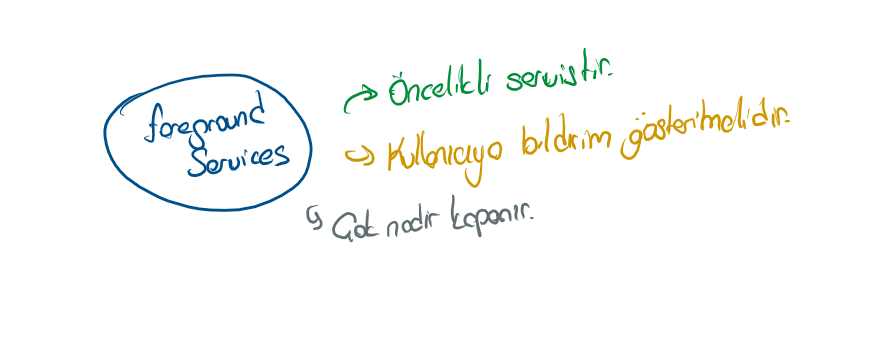 foreground
Services
→ Öncelikli servistir.
→ Kullanıcıya bildirim gösterilmelidir.
↳ Çok nadir kapanır.